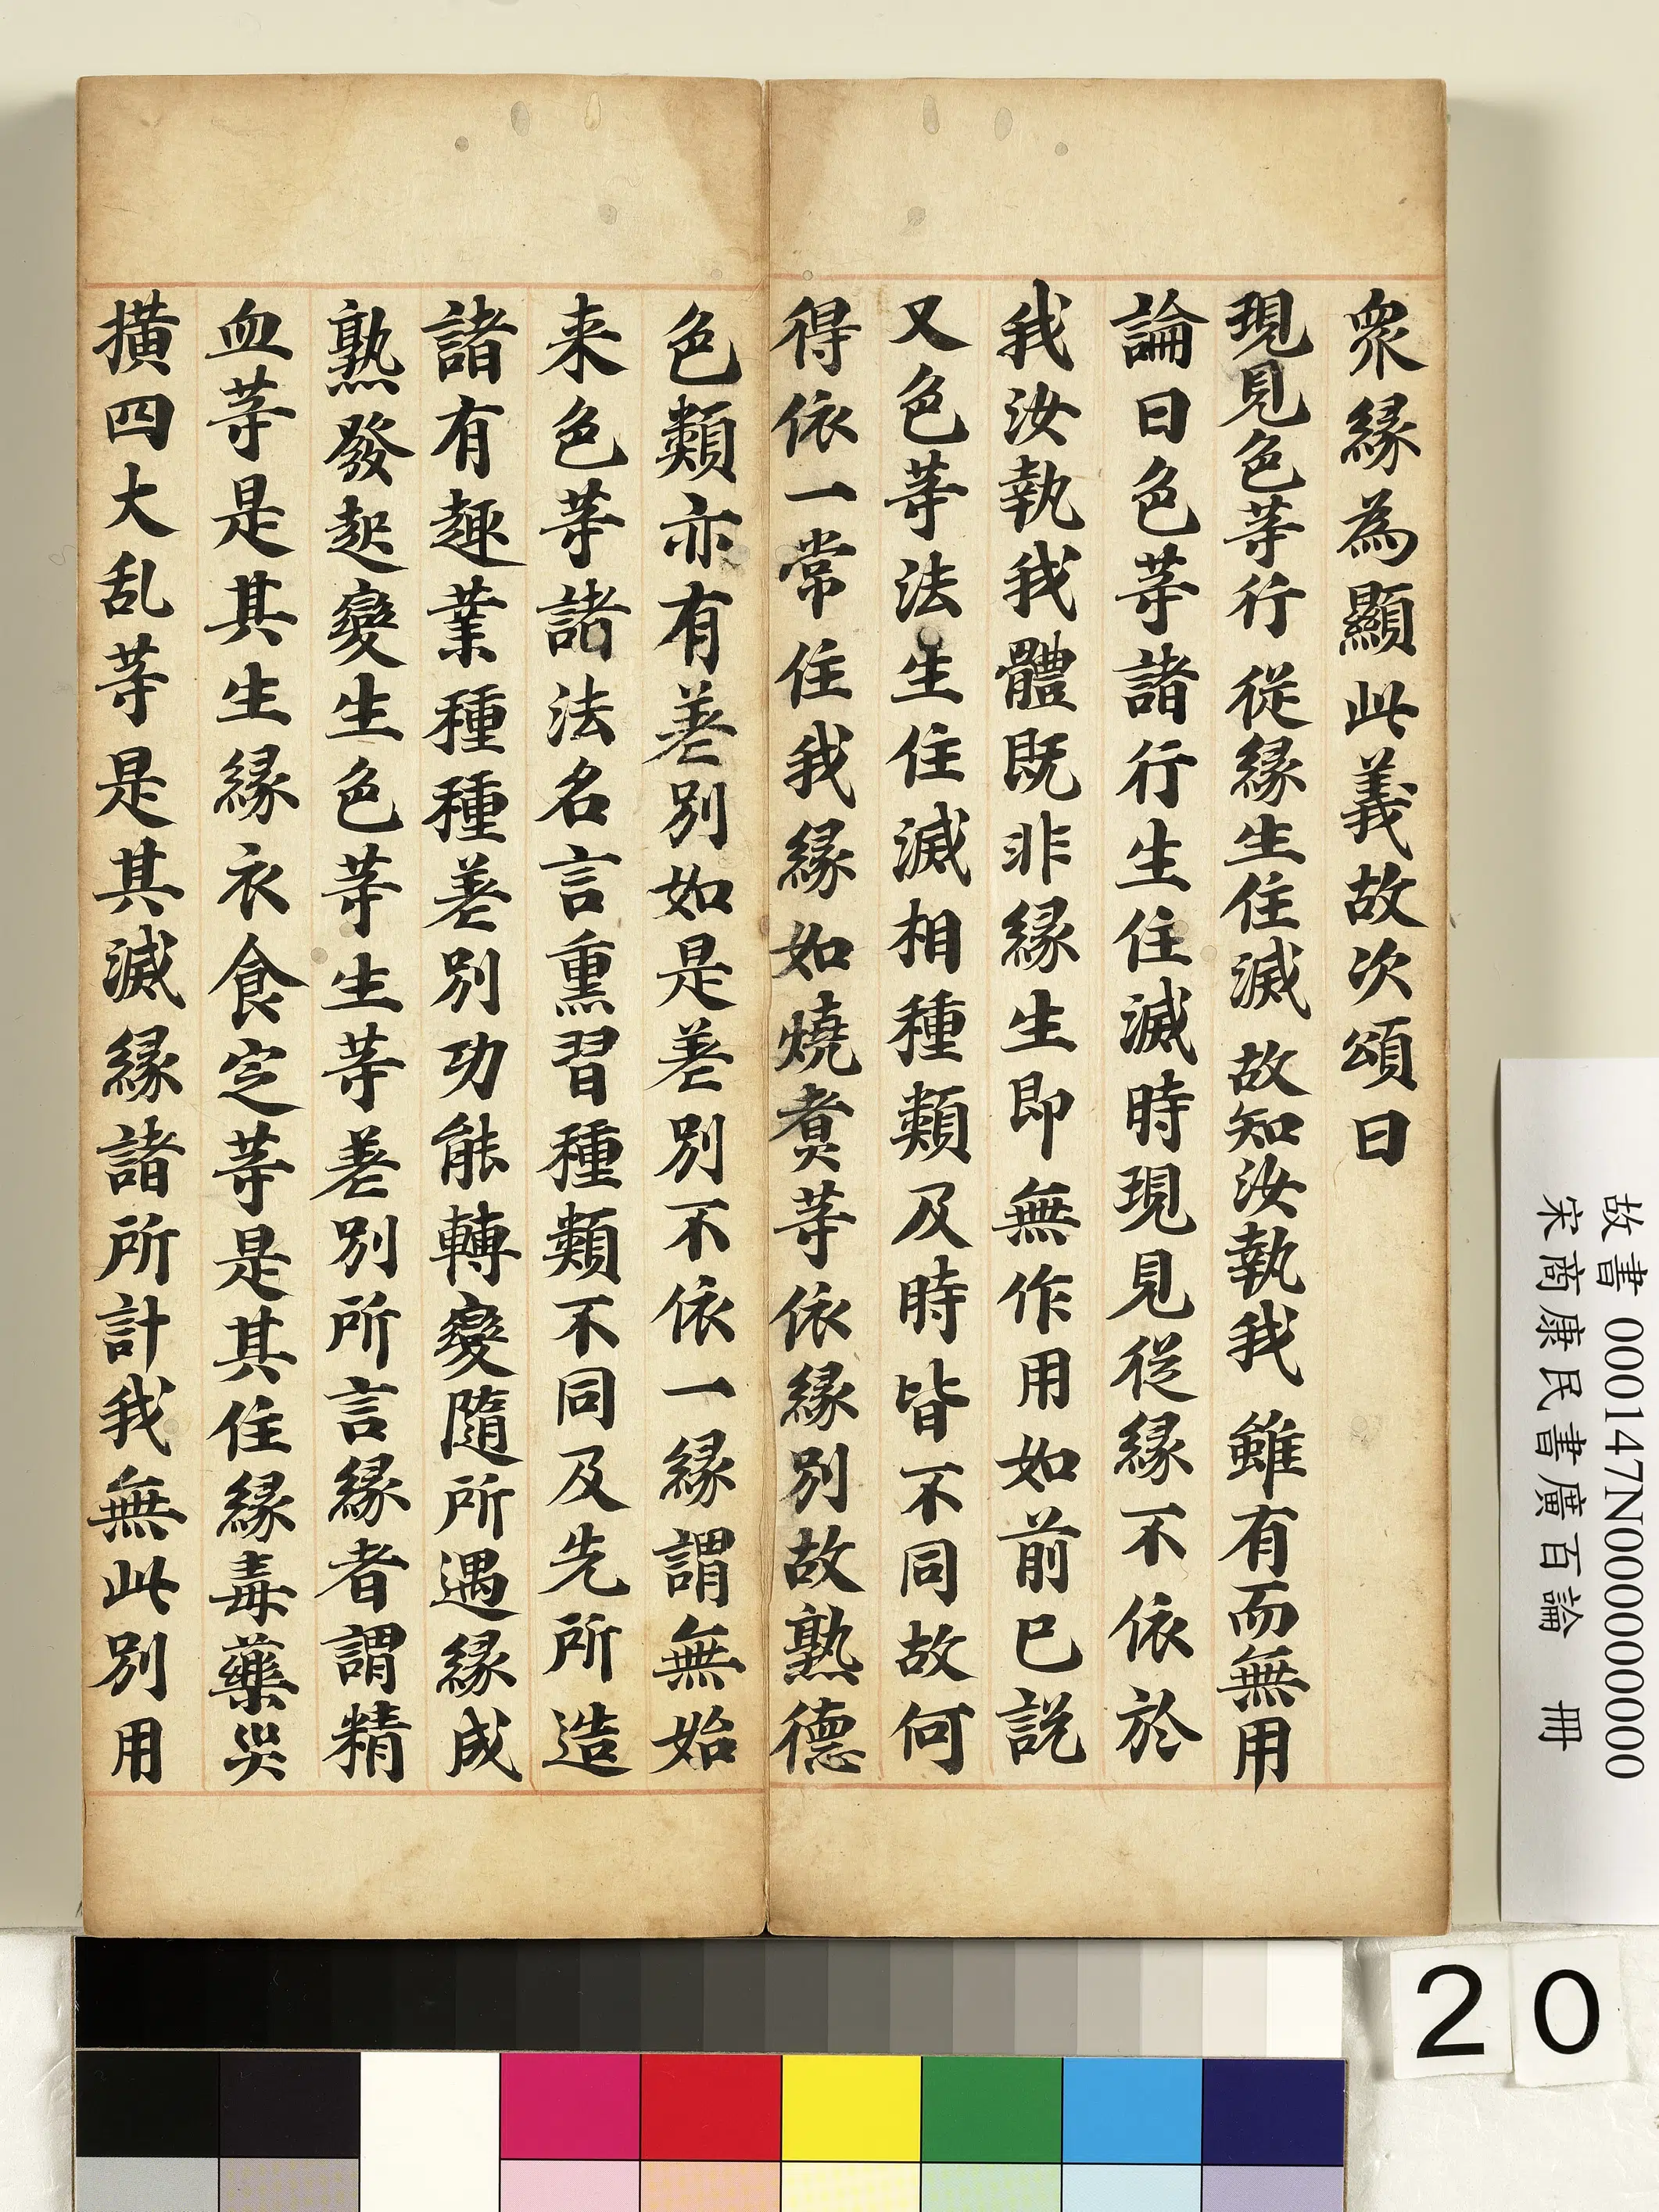 衆緣為顯此義故次頌曰
現見色等行　從緣生住滅　故知汝執我　雖有而無用
論曰色等諸行生住滅時現見從緣不依於
我汝執我體既非緣生即無作用如前已説
又色等法生住滅相種類及時皆不同故何
得依一常住我緣如燒煑等依緣別故熟德
色類亦有差別如是差別不依一緣謂無始
来色等諸法名言熏習種類不同及先所造
諸有趣業種種差別功能轉變隨所遇緣成
熟發起變生色等生等差別所言緣者謂精
血等是其生緣衣食定等是其住緣毒藥災
撗四大乱等是其滅緣諸所計我無此別用
故書 000147N000000000
宋商康民書廣百論　冊
20